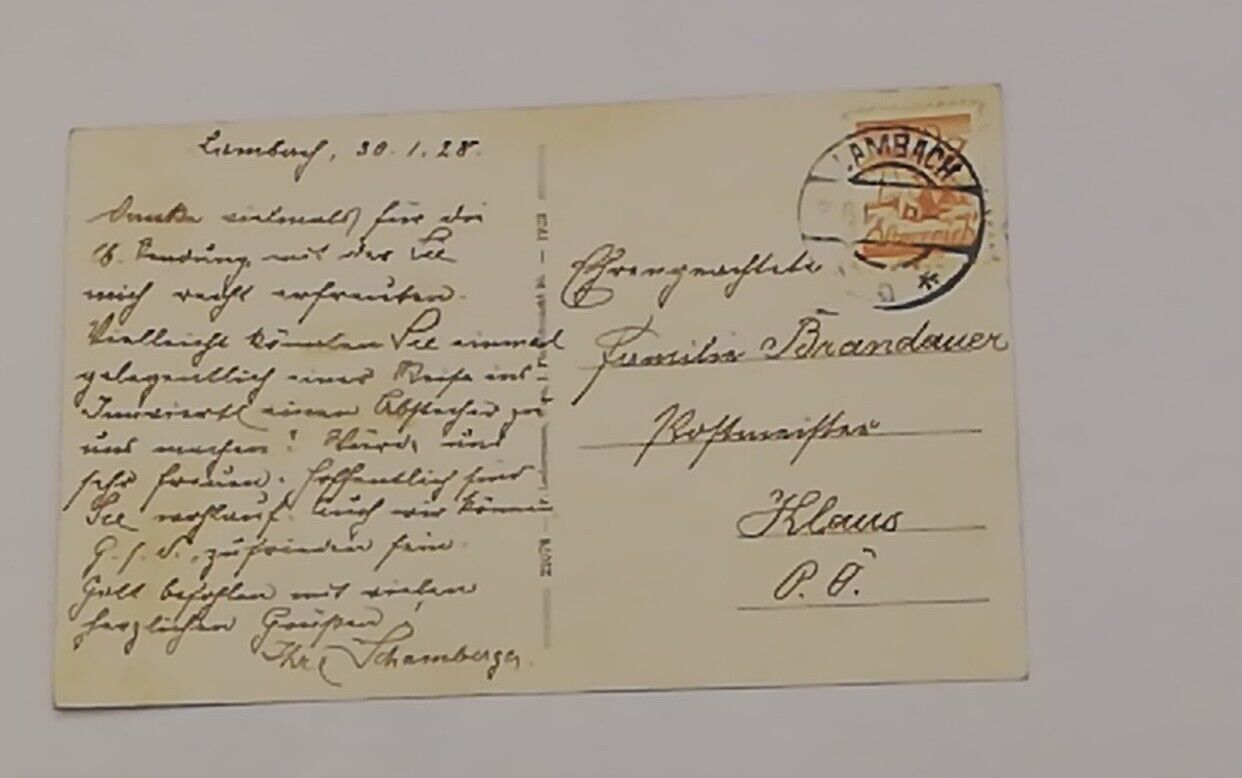 Lambach, 30.1.28.
Danke vielmals für die
lb. Sendung, mit der Sie
mich recht erfreuten.
Vielleicht könnten Sie einmal
gelegentlich einer Reise ins
Innviertl einen Abstecher zu
uns machen! Würd. uns
sehr freuen. Hoffentlich sind
Sie wohlauf. Auch wir können
G. s. D. zufrieden sein.
Gott befohlen mit vielen
herzlichen Grüßen!
Ihr Schamberger.
LAMBACH
Österreich
Ehrengeachtete
Familie Brandauer
Postmeister
Klaus
O. Ö.